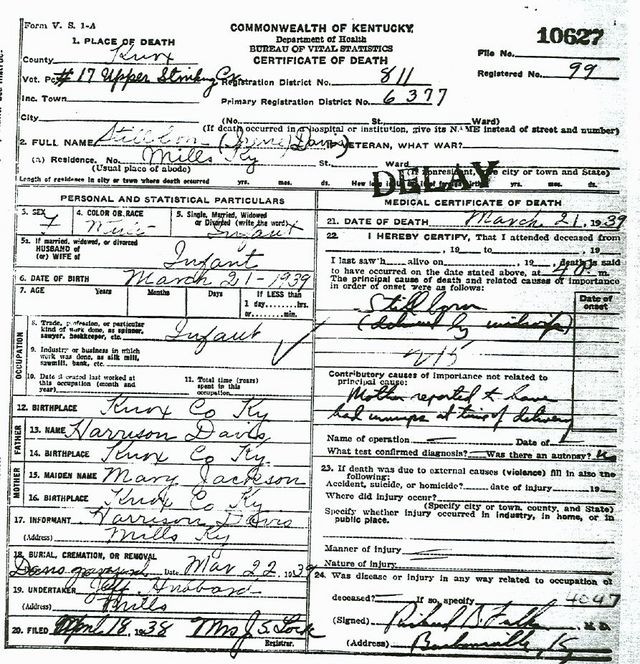 Form V. S. 1-A
COMMONWEALTH OF KENTUCKY
Department of Health
BUREAU OF VITAL STATISTICS
CERTIFICATE OF DEATH
10627
File No.
Registered No. 99
1. PLACE OF DEATH
County Knox
Vot. Pct. #17 Upper Stinking Registration District No. 811
Inc. Town Primary Registration District No. 6377
City (No. St. Ward)
(If death occurred in a hospital or institution, give its NAME instead of street and number)
2. FULL NAME Stillborn (Irene) Davis VETERAN, WHAT WAR?
(a) Residence. No. Mills Ky St. Ward
(Usual place of abode) (If nonresident, give city or town and State)
DELAY
Length of residence in city or town where death occurred yrs. mos. ds. yrs. mos. ds.
PERSONAL AND STATISTICAL PARTICULARS
3. SEX F 4. COLOR OR RACE 5. Single, Married, Widowed or Divorced (write the word) Infant
5a. If married, widowed, or divorced
HUSBAND of
(or) WIFE of Infant
6. DATE OF BIRTH March 21-1939
7. AGE Years Months Days If LESS than
1 day, hrs.
or min.
OCCUPATION
8. Trade, profession, or particular
kind of work done, as spinner,
sawyer, bookkeeper, etc. Infant
9. Industry or business in which
work was done, as silk mill,
sawmill, bank, etc.
10. Date deceased last worked at
this occupation (month and
year)
11. Total time (years)
spent in this
occupation
12. BIRTHPLACE Knox Co Ky
FATHER
13. NAME Harrison Davis
14. BIRTHPLACE Knox Co Ky
MOTHER
15. MAIDEN NAME Mary Jackson
16. BIRTHPLACE Knox Co Ky
17. INFORMANT Harrison Davis
(Address) Mills Ky
18. BURIAL, CREMATION, OR REMOVAL
Davis graveyard Date Mar 22 1939
19. UNDERTAKER Jeff Hubbard
(Address) Mills
20. FILED April 18, 1938 Mrs J. S. Lock
Registrar.
MEDICAL CERTIFICATE OF DEATH
21. DATE OF DEATH March 21, 1939
22. I HEREBY CERTIFY, That I attended deceased from
, 19 to , 19
I last saw h alive on , 19 , death is said
to have occurred on the date stated above, at m.
The principal cause of death and related causes of importance
in order of onset were as follows:
Date of
onset
Stillborn
(delivered by midwife)
Contributory causes of importance not related to
principal cause:
Mother reported to have
had mumps at time of delivery
Name of operation Date of
What test confirmed diagnosis? Was there an autopsy? No
23. If death was due to external causes (violence) fill in also the
following:
Accident, suicide, or homicide? date of injury 19
Where did injury occur?
(Specify city or town, county, and State)
Specify whether injury occurred in industry, in home, or in
public place.
Manner of injury
Nature of injury
24. Was disease or injury in any way related to occupation of
deceased? If so, specify 4047
(Signed) M. D.
(Address) Barbourville, Ky